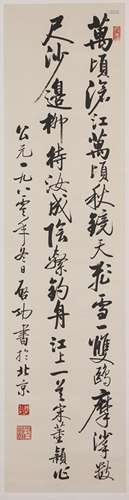 萬頃滄江萬頃秋鏡天飛雪一雙鷗摩挲數
尺沙邊柳待汝成陰繫釣舟江上一首宋董穎作
公元一九八零年冬日啟功書於北京